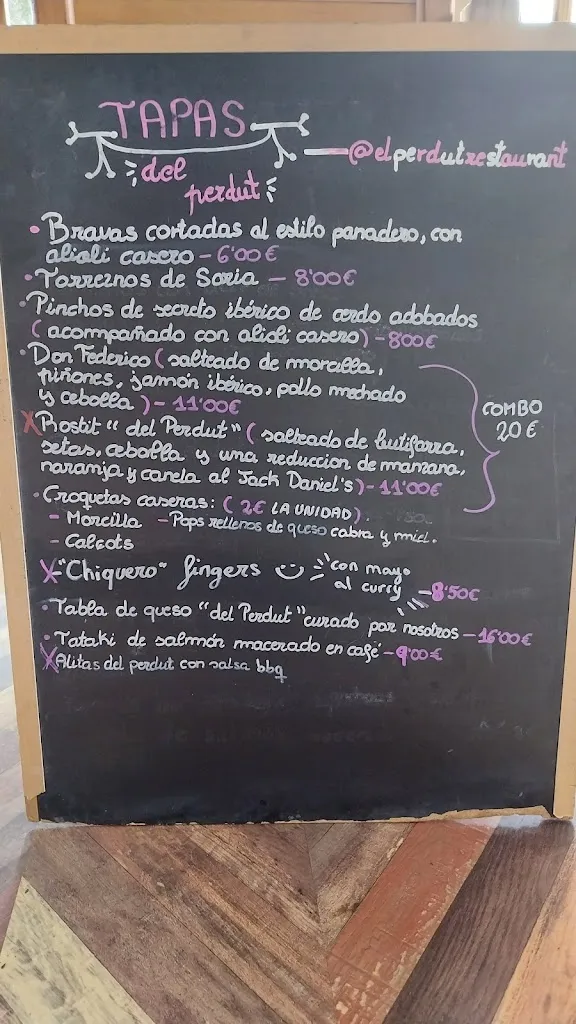 TAPAS
del
perdut
@elperdutrestaurant
• Bravas cortadas al estilo panadero, con
alioli casero - 6'00€
• Torreznos de Soria - 8'00€
• Pinchos de secreto ibérico de cerdo adobados
(acompañado con alioli casero) - 8'00€
• Don Federico (salteado de morcilla,
piñones, jamón ibérico, pollo mechado
y cebolla) - 11'00€
X Rostit "del Perdut" (salteado de butifarra,
setas, cebolla y una reduccion de manzana,
naranja y canela al Jack Daniel's) - 11'00€
COMBO
20€
• Croquetas caseras: (2€ LA UNIDAD).
- Morcilla - Pops rellenos de queso cabra y miel.
- Calçots
X "Chiquero" fingers con mayo
al curry - 8'50€
• Tabla de queso "del Perdut" curado por nosotros - 16'00€
• Tataki de salmón macerado en café - 9'00€
X Alitas del perdut con salsa bbq